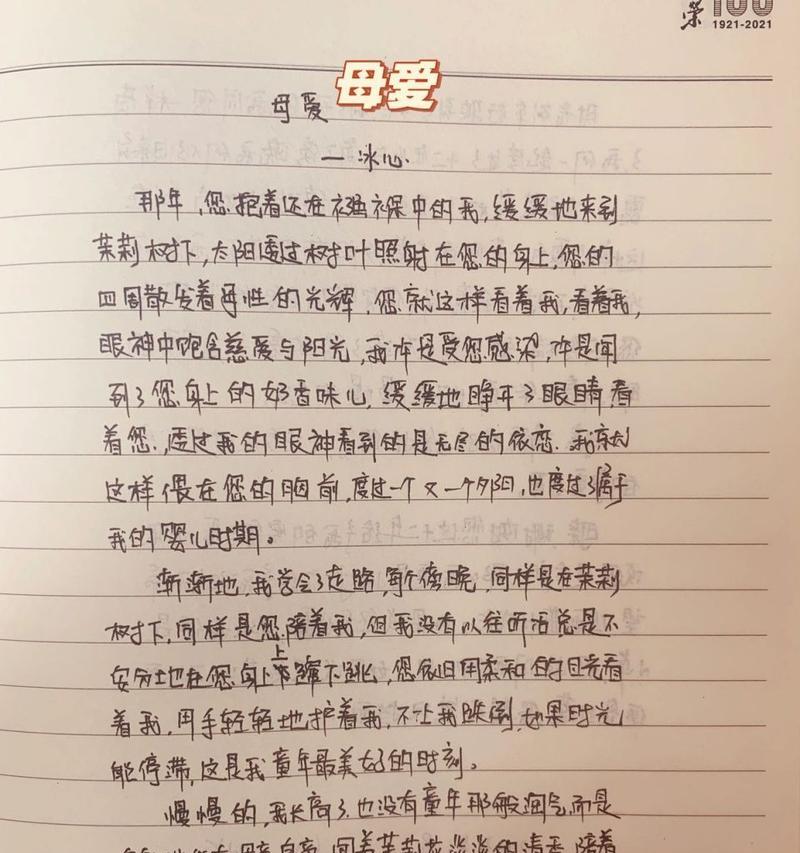 荣 100
1921-2021
母爱
母爱
一冰心.
那年,您抱着还在襁褓中的我,缓缓地来到
茉莉树下,太阳透过树叶照射在您的身上,您的
四周散发着母性的光辉,您就这样看着我,看着我,
眼神中饱含慈爱与阳光,我许是受您感染,许是闻
到了您身上的奶香味儿,缓缓地睁开了眼睛,看
着您,透过我的眼神看到的是无尽的依恋.我就
这样偎在您的胸前,度过一个又一个夕阳,也度过了属于
我的婴儿时期。
渐渐地,我学会了走路,每个傍晚,同样是在茉莉
树下,同样是您陪着我,但我没有以往听话总是不
安分地在您身上上蹿下跳,您依旧用柔和的目光看
着我,用手轻轻地护着我,不让我跌倒,如果时光
能停滞,这是我童年最美好的时刻。
慢慢的,我长高了,也没有童年那般淘气而是
闻着茉莉花淡淡的清香,陪着